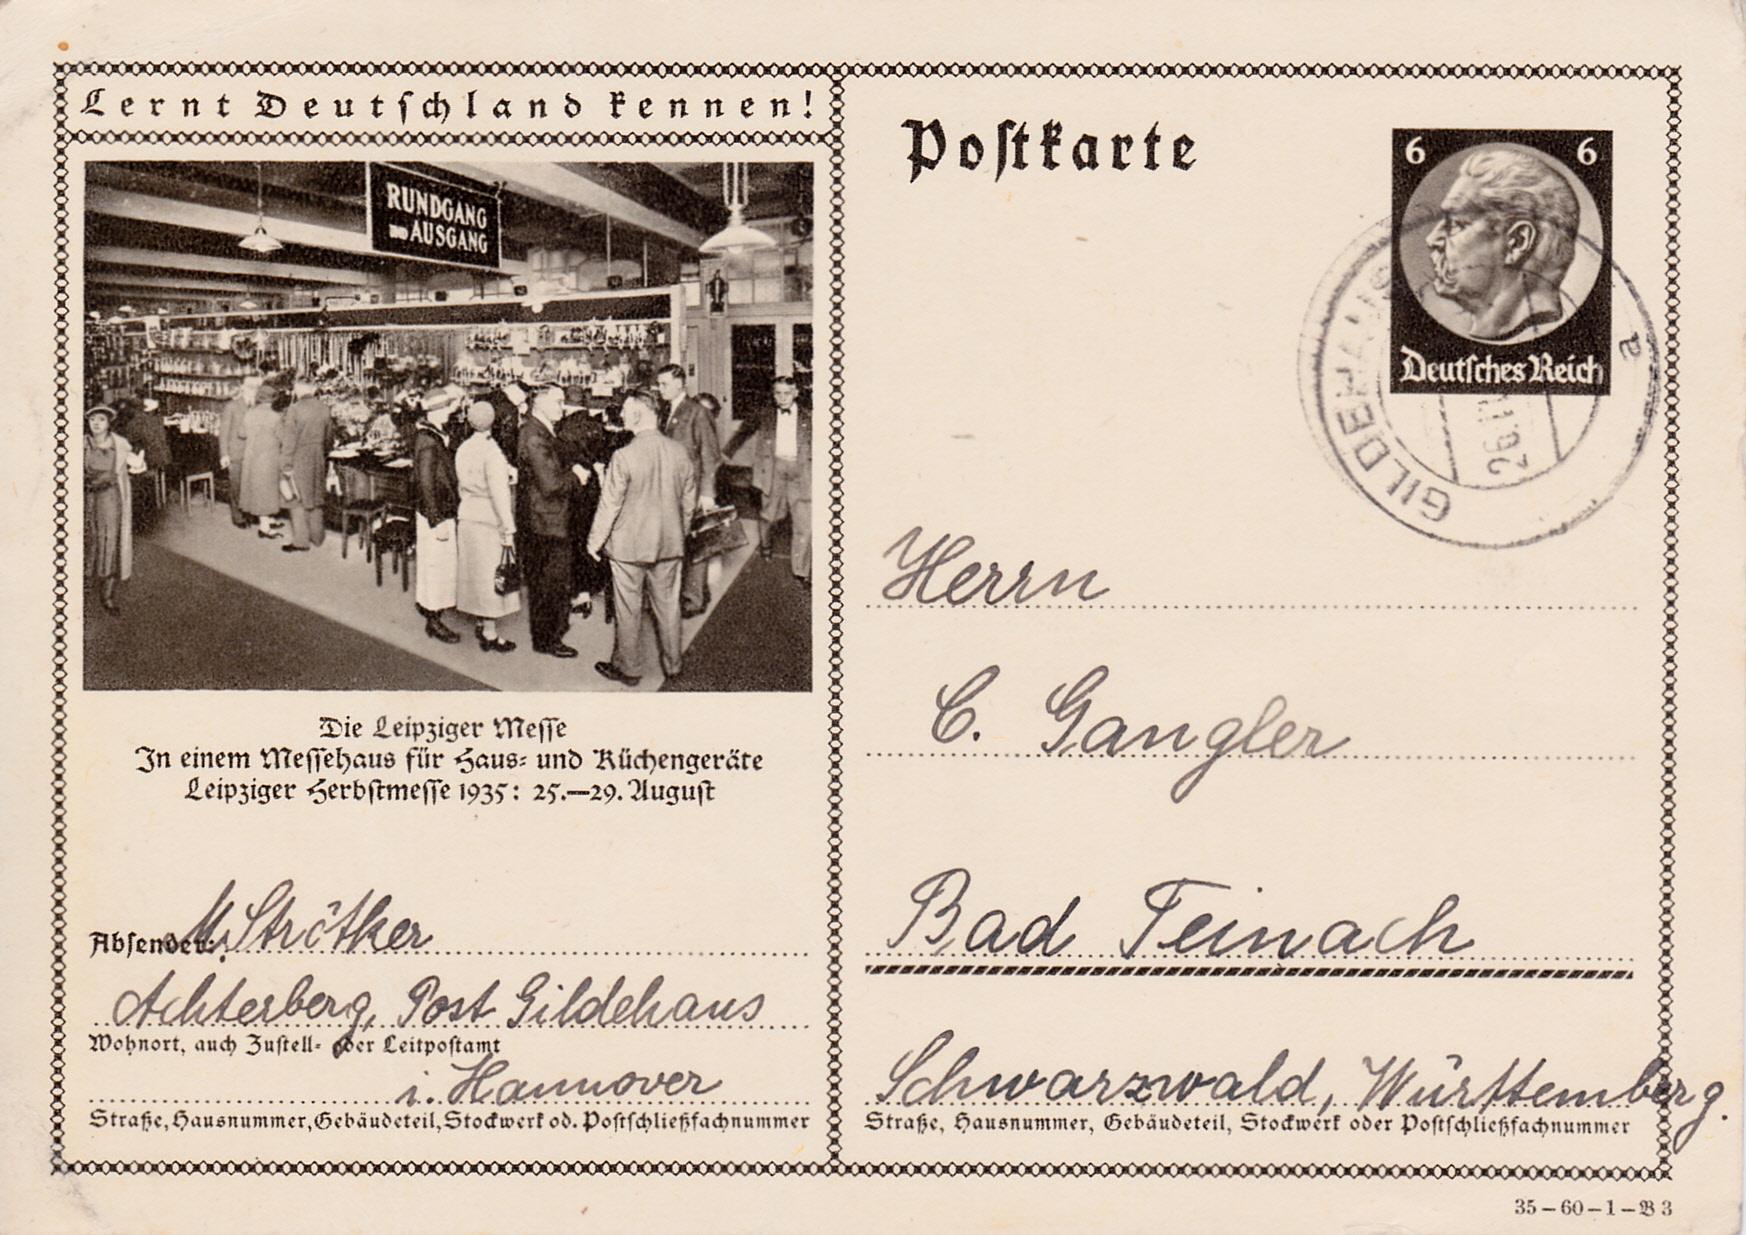 Lernt Deutschland kennen!
RUNDGANG
UND AUSGANG
Die Leipziger Messe
In einem Messehaus für Haus- und Küchengeräte
Leipziger Herbstmesse 1935: 25.—29. August
Absender: M. Strötker
Achterberg, Post Gildehaus
Wohnort, auch Zustell- oder Leitpostamt
i. Hannover
Straße, Hausnummer, Gebäudeteil, Stockwerk od. Postschließfachnummer
Postkarte
6 6
Deutsches Reich
GILDEHAUS
a
Herrn
C. Gangler
Bad Teinach
Schwarzwald, Württemberg.
Straße, Hausnummer, Gebäudeteil, Stockwerk oder Postschließfachnummer
35–60–1–B 3